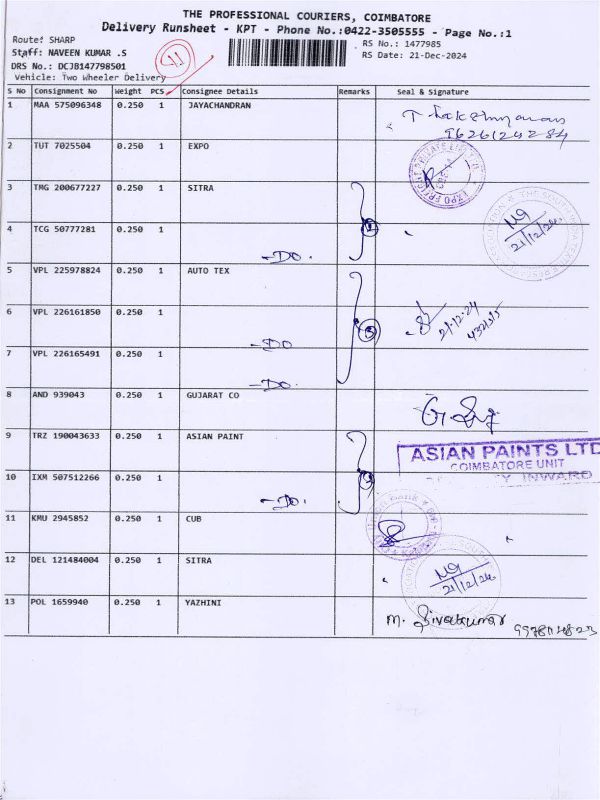 THE PROFESSIONAL COURIERS, COIMBATORE
Delivery Runsheet - KPT - Phone No.:0422-3505555 - Page No.:1
Route: SHARP
RS No.: 1477985
Staff: NAVEEN KUMAR .S
RS Date: 21-Dec-2024
DRS No.: DCJB147798501
Vehicle: Two Wheeler Delivery
S No Consignment No Weight PCS Consignee Details Remarks Seal & Signature
1 MAA 575096348 0.250 1 JAYACHANDRAN
2 TUT 7025504 0.250 1 EXPO
3 TMG 200677227 0.250 1 SITRA
21/12/24
4 TCG 50777281 0.250 1
-DO.
5 VPL 225978824 0.250 1 AUTO TEX
6 VPL 226161850 0.250 1
21.12.24
-DO
3
7 VPL 226165491 0.250 1
-DO.
8 AND 939043 0.250 1 GUJARAT CO
9 TRZ 190043633 0.250 1 ASIAN PAINT
ASIAN PAINTS LTD
COIMBATORE UNIT
INWARD
10 IXM 507512266 0.250 1
-DO.
11 KMU 2945852 0.250 1 CUB
12 DEL 121484004 0.250 1 SITRA
21/12/24
13 POL 1659940 0.250 1 YAZHINI
M. Sivakumar